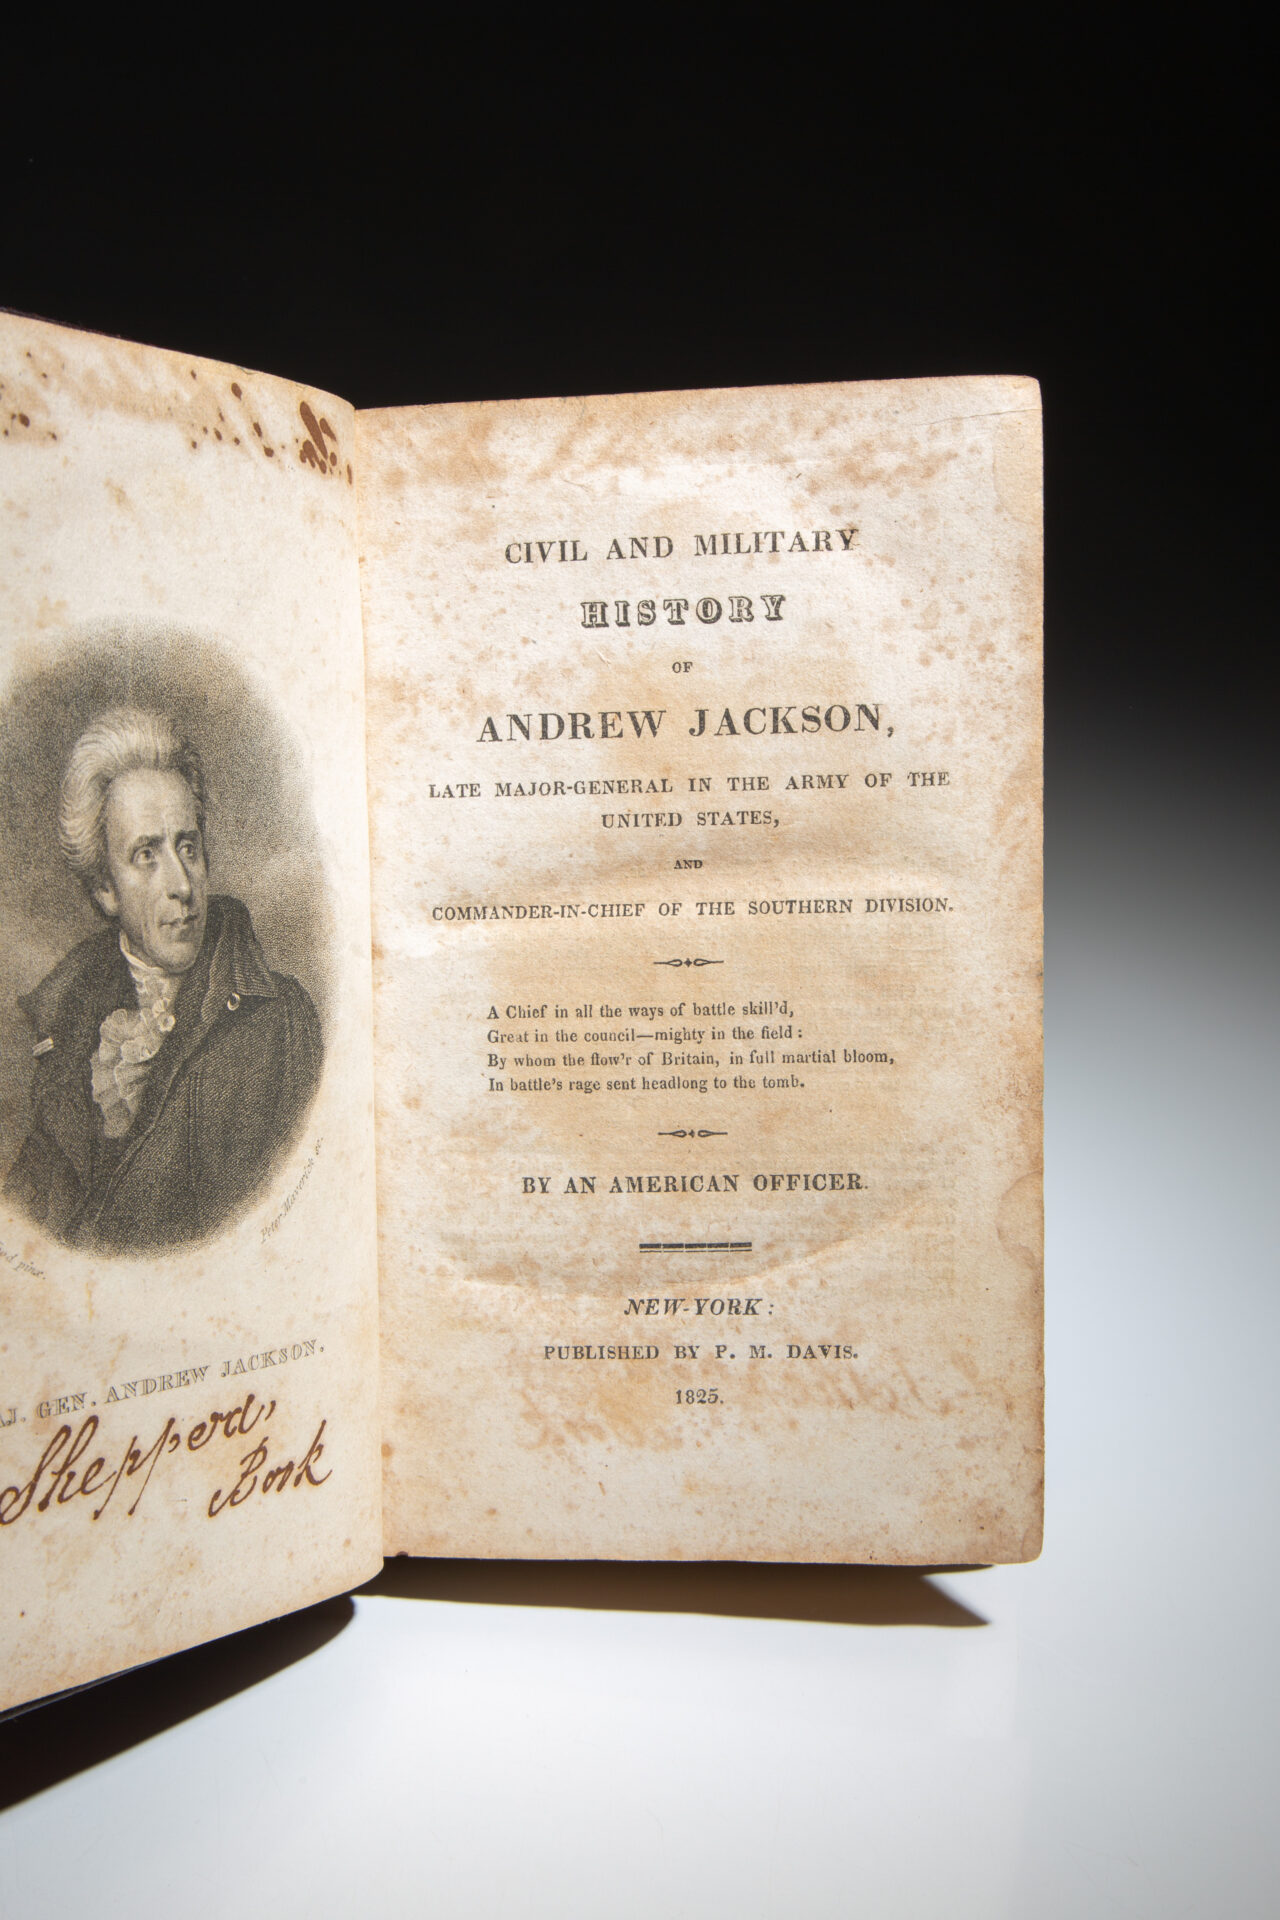 Peter Maverick sc.
pinx.
GEN. ANDREW JACKSON.
Shepperd,
Book
CIVIL AND MILITARY
HISTORY
OF
ANDREW JACKSON,
LATE MAJOR-GENERAL IN THE ARMY OF THE
UNITED STATES,
AND
COMMANDER-IN-CHIEF OF THE SOUTHERN DIVISION.
A Chief in all the ways of battle skill'd,
Great in the council—mighty in the field:
By whom the flow'r of Britain, in full martial bloom,
In battle's rage sent headlong to the tomb.
BY AN AMERICAN OFFICER.
NEW-YORK:
PUBLISHED BY P. M. DAVIS.
1825.